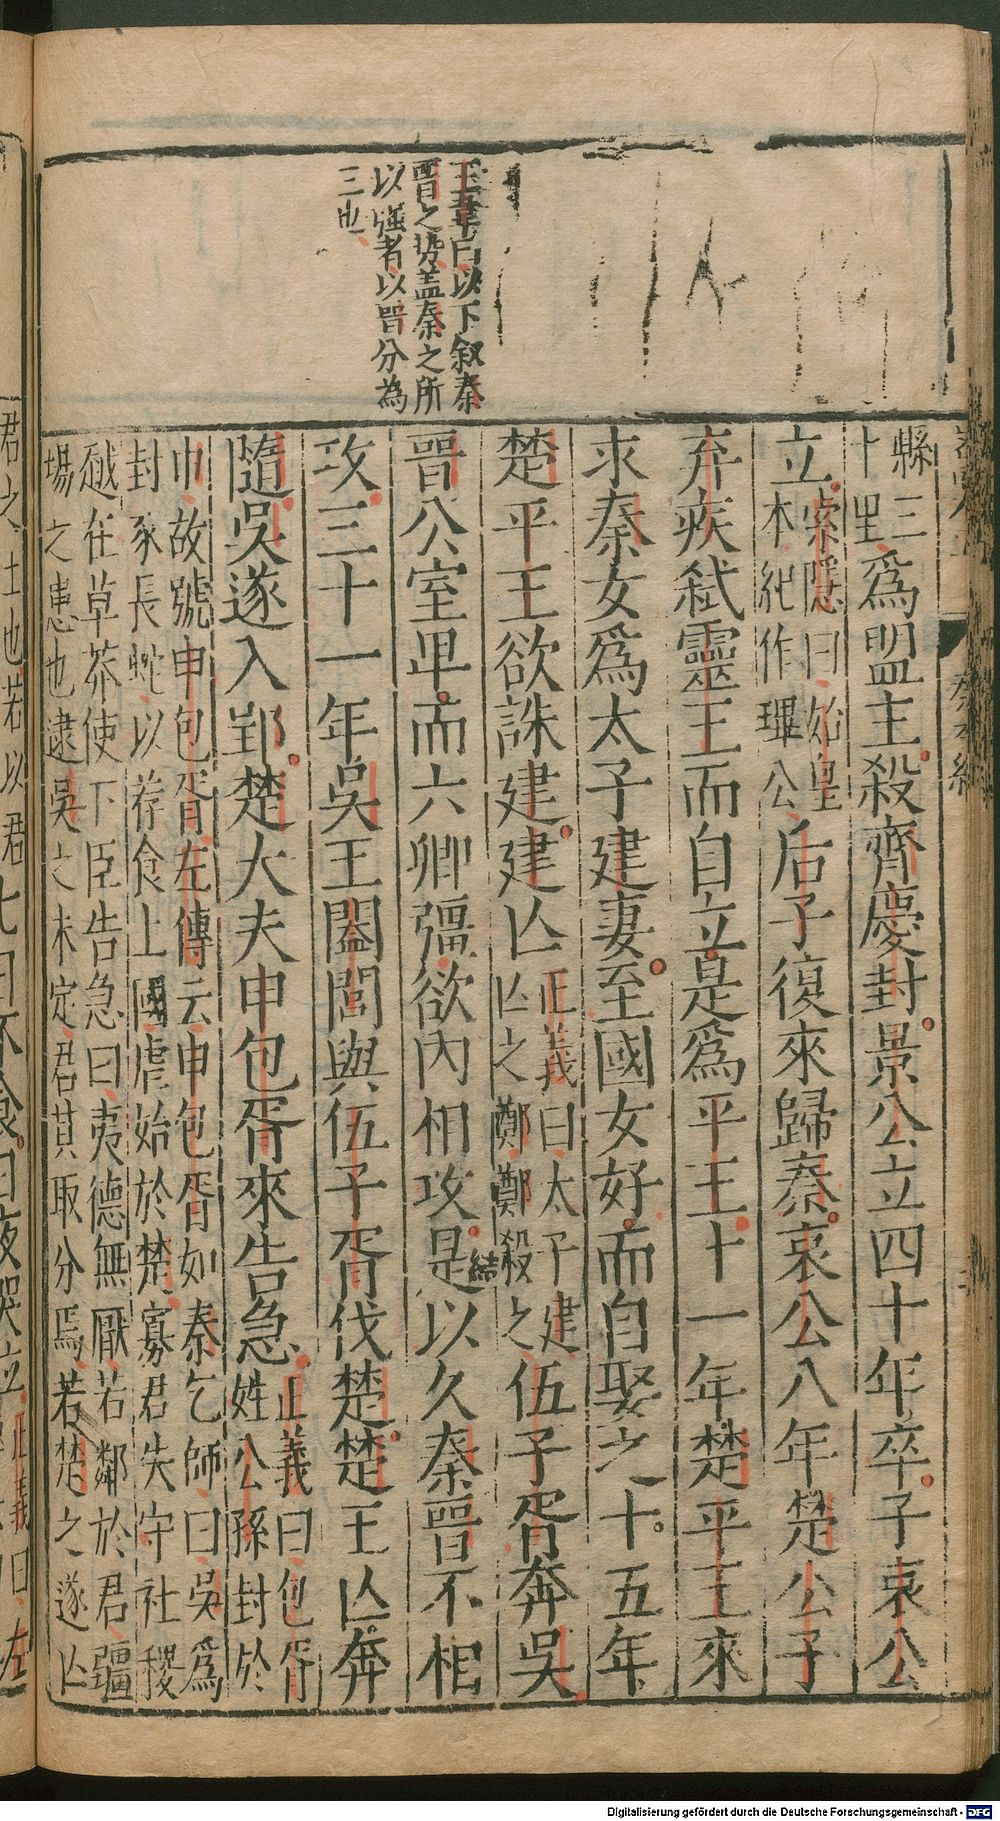 王韋曰以下叙秦
晋之势盖秦之所
以強者以晋分為
三也
縣三十里爲盟主殺齊慶封景公立四十年卒子哀公
立索隱曰始皇本紀作㻫公后子復來歸秦哀公八年楚公子
弃疾弑靈王而自立是爲平王十一年楚平王來
求秦女爲太子建妻至國女好而自娶之十五年
楚平王欲誅建建亾正義曰太子建亾之鄭鄭殺之伍子胥奔吳
晋公室卑而六卿彊欲內相攻是以久秦晋不相
結
攻三十一年吳王闔閭與伍子胥伐楚楚王亾奔
隨吳遂入郢楚大夫申包胥來告急正義曰包胥姓公孫封於
巾故號申包胥左傳云申包胥如秦乞師曰吳爲
封豕長蛇以荐食上國虐始於楚寡君失守社稷
越在草莽使下臣告急曰夷德無厭若鄰於君疆
場之患也逮吳之未定君其取分焉若楚之遂亾
君之土也若以君
七日不食日夜哭
正義曰左
Digitalisierung gefördert durch die Deutsche Forschungsgemeinschaft - DFG